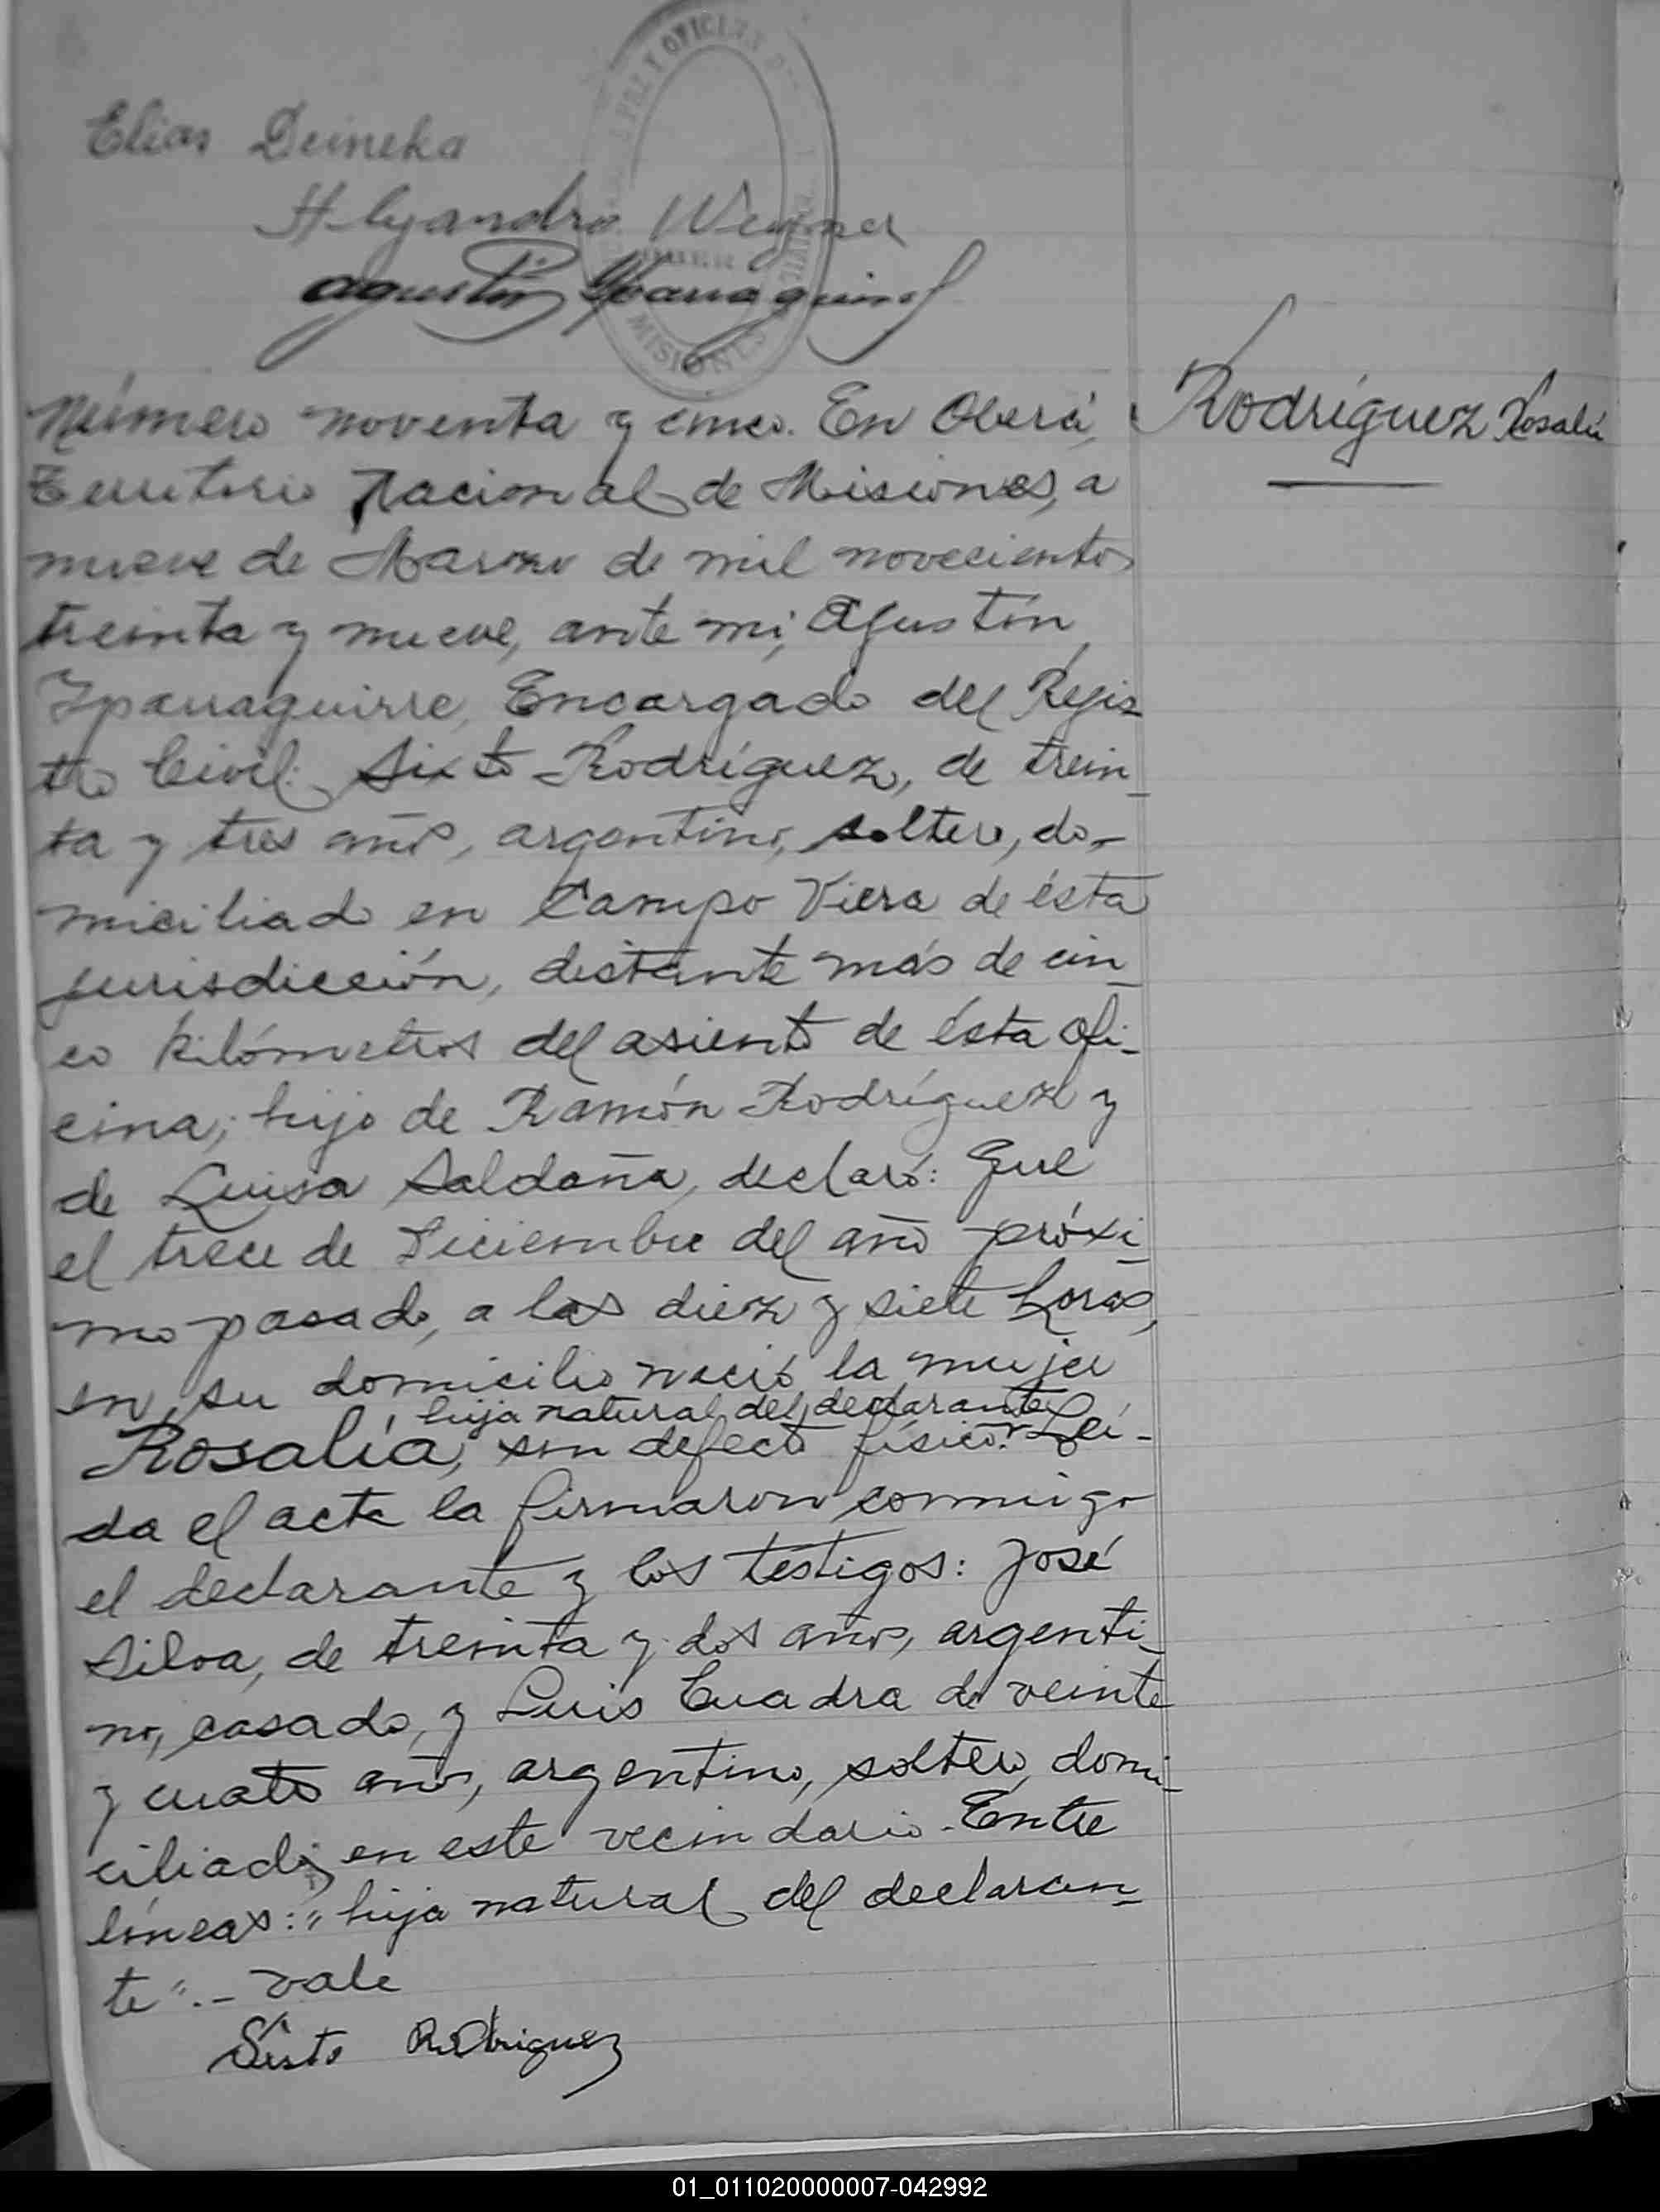 JUEZ Y OFICIAL
Elias Deineka
Alejandro Wegner
Agustín Yparraguirre
MISIONES
Número noventa y cinco. En Oberá,
Rodríguez Rosalía
Territorio Nacional de Misiones, a
nueve de Marzo de mil novecientos
treinta y nueve, ante mi, Agustín
Yparraguirre, Encargado del Regis-
tro Civil: Sixto Rodríguez, de trein-
ta y tres años, argentino, soltero, do-
miciliado en Campo Viera de ésta
jurisdicción, distante más de cin-
co kilómetros del asiento de ésta ofi-
cina; hijo de Ramón Rodríguez y
de Luisa Saldaña, declaró: Que
el trece de Diciembre del año próxi-
mo pasado, a las diez y siete horas,
en su domicilio nació la mujer
hija natural del declarante
Rosalía, sin defecto físico. Leí-
da el acta la firmaron conmigo
el declarante y los testigos: José
Silva, de treinta y dos años, argenti-
no, casado, y Luis Cuadra de veinte
y cuatro años, argentino, soltero, domi-
ciliados en este vecindario. Entre
líneas: "hija natural del declaran-
te".- vale
Sisto Rodriguez
01_011020000007-042992